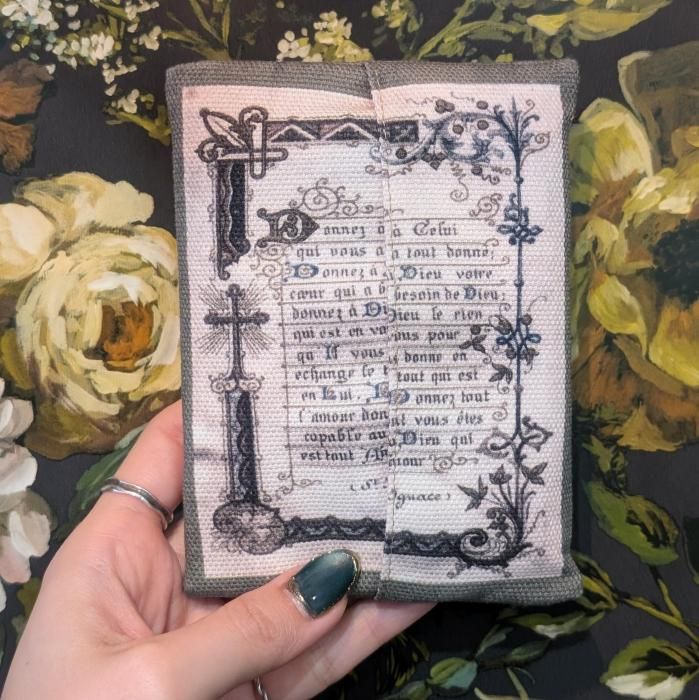 Donnez à à Celui
qui vous a a tout donné;
Donnez à Dieu votre
cœur qui a b besoin de Dieu;
donnez à Di Dieu le rien
qui est en vo ous pour
qu Il vous donne en
echange le t tout qui est
en Lui, Donnez tout
l'amour don nt vous êtes
capable au Dieu qui
est tout Am amour
(St Ignace)